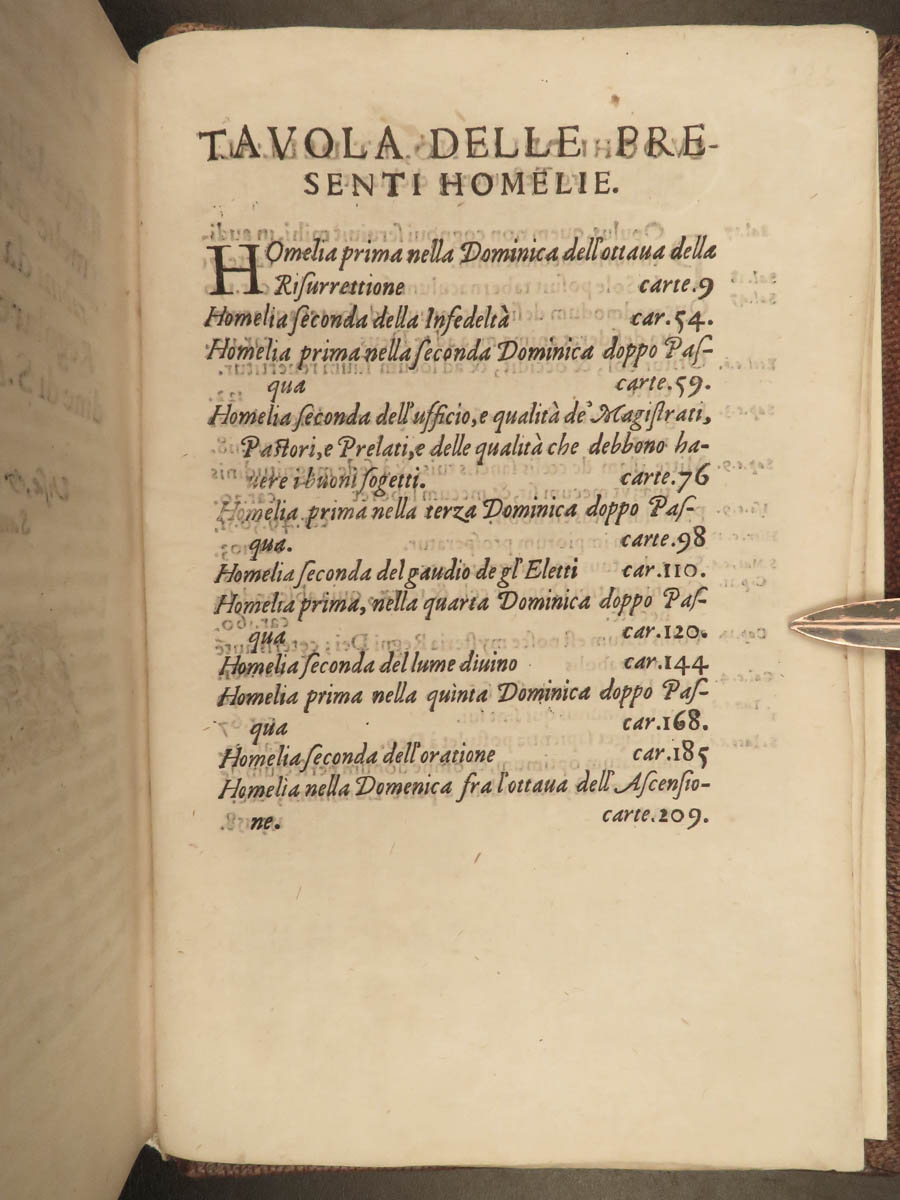 TAVOLA DELLE PRE-
SENTI HOMELIE.
HOmelia prima nella Dominica dell'ottaua della
Riſurrettione carte.9
Homelia ſeconda della Infedeltà car.54.
Homelia prima nella ſeconda Dominica doppo Paſ-
qua carte.59.
Homelia ſeconda dell'ufficio, e qualità de' Magiſtrati,
Paſtori, e Prelati, e delle qualità che debbono ha-
uere i buoni ſogetti. carte.76
Homelia prima nella terza Dominica doppo Paſ-
qua. carte.98
Homelia ſeconda del gaudio de gl'Eletti car.110.
Homelia prima, nella quarta Dominica doppo Paſ-
qua car.120.
Homelia ſeconda del lume diuino car.144
Homelia prima nella quinta Dominica doppo Paſ-
qua car.168.
Homelia ſeconda dell'oratione car.185
Homelia nella Domenica fra l'ottaua dell'Aſcenſio-
ne. carte.209.